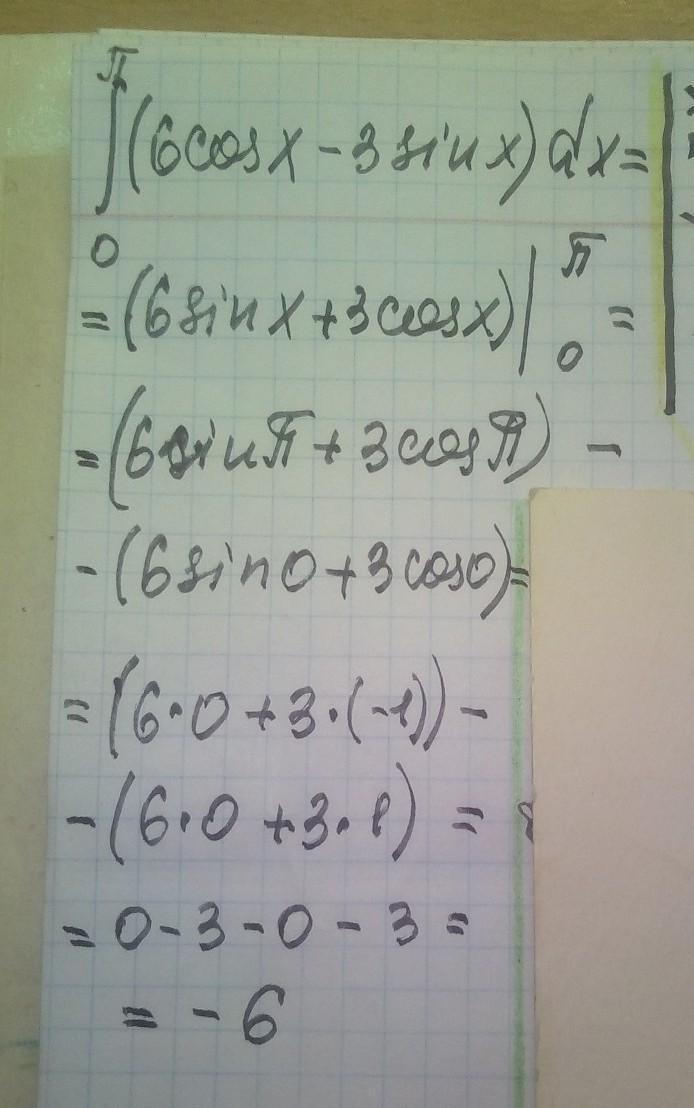 π
∫(6cosx-3sinx)dx=
0
=(6sinx+3cosx)|π0=
=(6sinπ+3cosπ) -
-(6sin0+3cos0)=
=(6·0+3·(-1))-
-(6·0+3·1) =
=0-3-0-3=
=-6